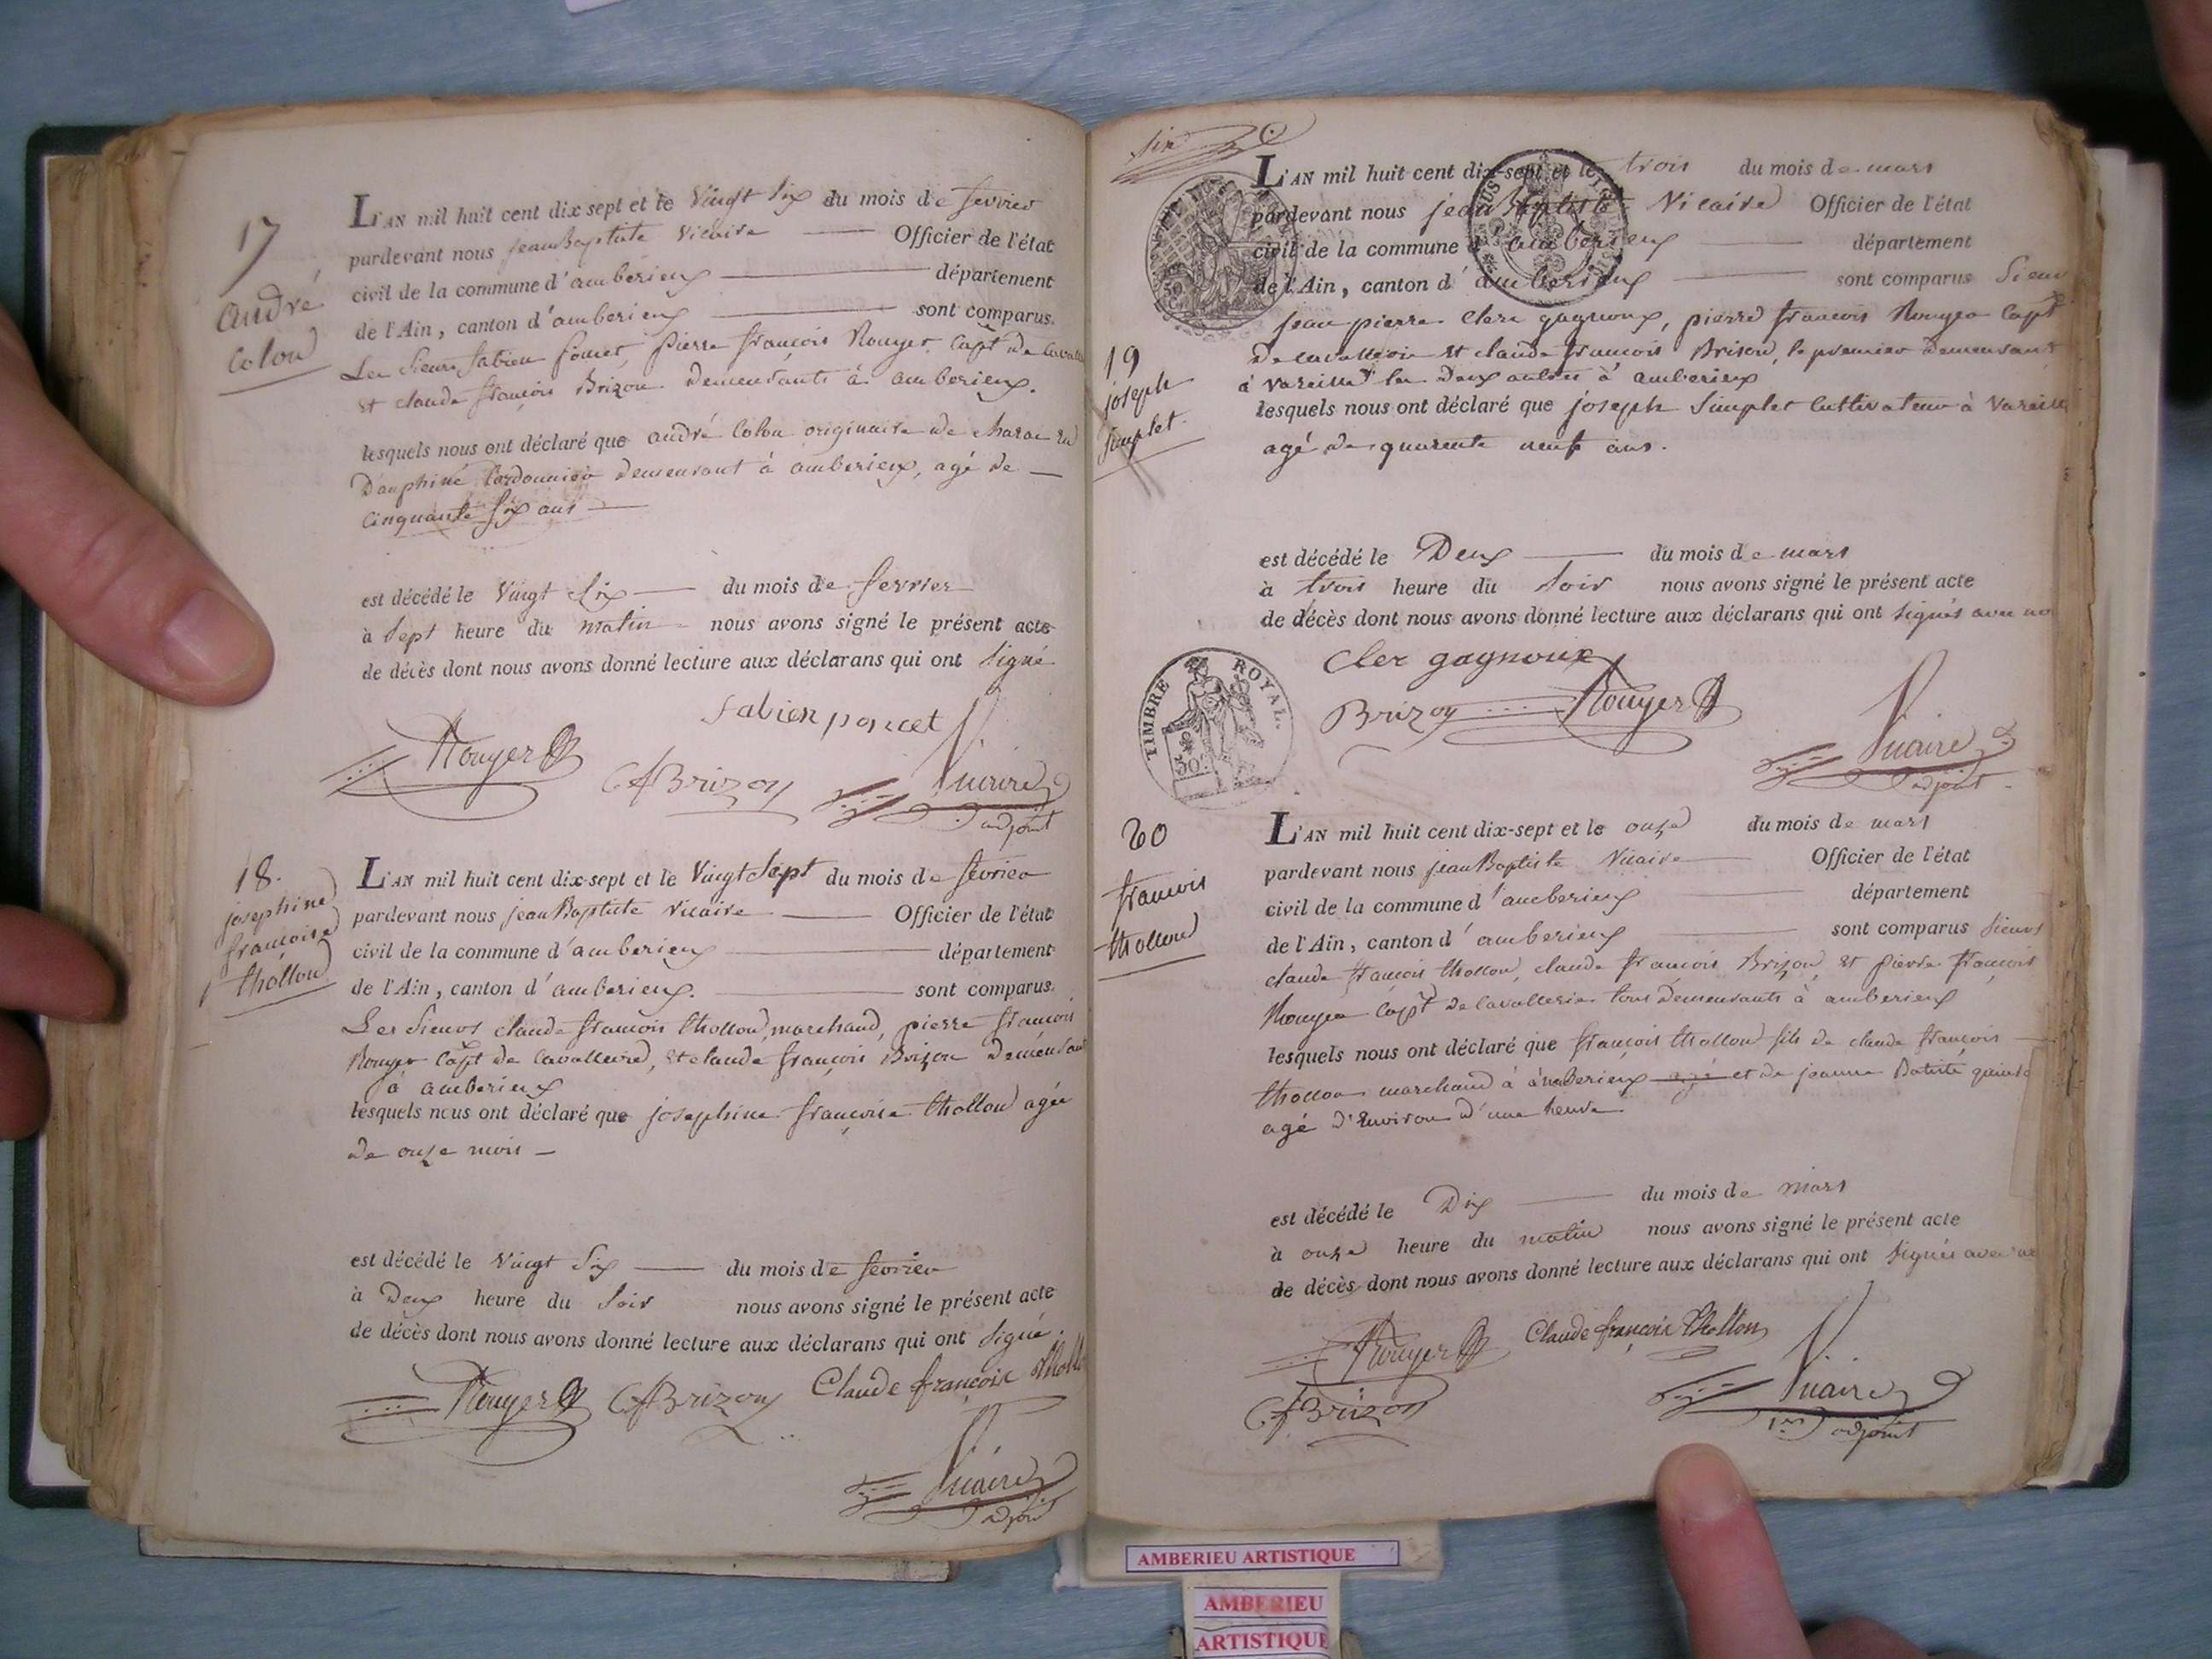 17
André
Colon
L'AN mil huit cent dix sept et le Vingt Six du mois de fevrier
pardevant nous jean Baptiste Vicaire Officier de l'état
civil de la commune d'amberieux département
de l'Ain, canton d'amberieux sont comparus
Les Sieurs fabien poncet, pierre françois Rouyer Capt de Caval
et claude françois Brizon demeurants à amberieux.
lesquels nous ont déclaré que andré Colon originaire de en
Dauphiné Cordonnier demeurant à amberieux, agé de
Cinquante Six ans
est décédé le Vingt Six du mois de fevrier
à Sept heure du matin nous avons signé le présent acte
de décès dont nous avons donné lecture aux déclarans qui ont Signé
fabien poncet
Rouyer
CfBrizon
Vicaire
adjoint
18.
josephine
françoise
thollon
L'AN mil huit cent dix-sept et le Vingt Sept du mois de fevrier
pardevant nous jean Baptiste Vicaire Officier de l'état
civil de la commune d'amberieux département
de l'Ain, canton d'amberieux. sont comparus
Les Sieurs claude francois thollon, marchand, pierre francois
Rouyer Capt de Cavallerie, et claude françois Brizon demeurant
à amberieux
lesquels nous ont déclaré que josephine françoise thollon agée
de onze mois
est décédé le Vingt Six du mois de fevrier
à Deux heure du Soir nous avons signé le présent acte
de décès dont nous avons donné lecture aux déclarans qui ont Signé.
Rouyer CfBrizon Claude françois thollo
Vicaire
adjoint
Six
L'AN mil huit cent dix-sept et le trois du mois de mars
pardevant nous jean Baptiste Vicaire Officier de l'état
civil de la commune d'amberieux département
de l'Ain, canton d'amberieux sont comparus Sieur
jean pierre Clerc gagnoux, pierre francois Rouyer Capt
de cavallerie et claude francois Brison, le premier demeurant
à Vareille les deux autres à amberieux
19
joseph
Simplet
lesquels nous ont déclaré que joseph Simplet Cultivateur à Vareille
agé de quarente neuf ans.
est décédé le Deux du mois de mars
à trois heure du Soir nous avons signé le présent acte
de décès dont nous avons donné lecture aux déclarans qui ont signés avec no
TIMBRE ROYAL.
50
Cler gagnoux
Brizon Rouyer
Vicaire
adjoint
20
francois
thollon
L'AN mil huit cent dix-sept et le onze du mois de mars
pardevant nous jean Baptiste Vicaire Officier de l'état
civil de la commune d'amberieux département
de l'Ain, canton d'amberieux sont comparus Sieurs
claude françois thollon, claude francois Brizon, et pierre françois
Rouyer Capt de Cavallerie tous demeurants à amberieux
lesquels nous ont déclaré que françois thollon fils de claude françois
thollon marchand à amberieux et de jeanne
agé d'Environ d'une heure
est décédé le Dix du mois de mars
à onze heure du matin nous avons signé le présent acte
de décès dont nous avons donné lecture aux déclarans qui ont Signés avec
Rouyer Claude françois thollon
CfBrizon Vicaire
1er adjoint
AMBERIEU ARTISTIQUE
AMBERIEU
ARTISTIQUE